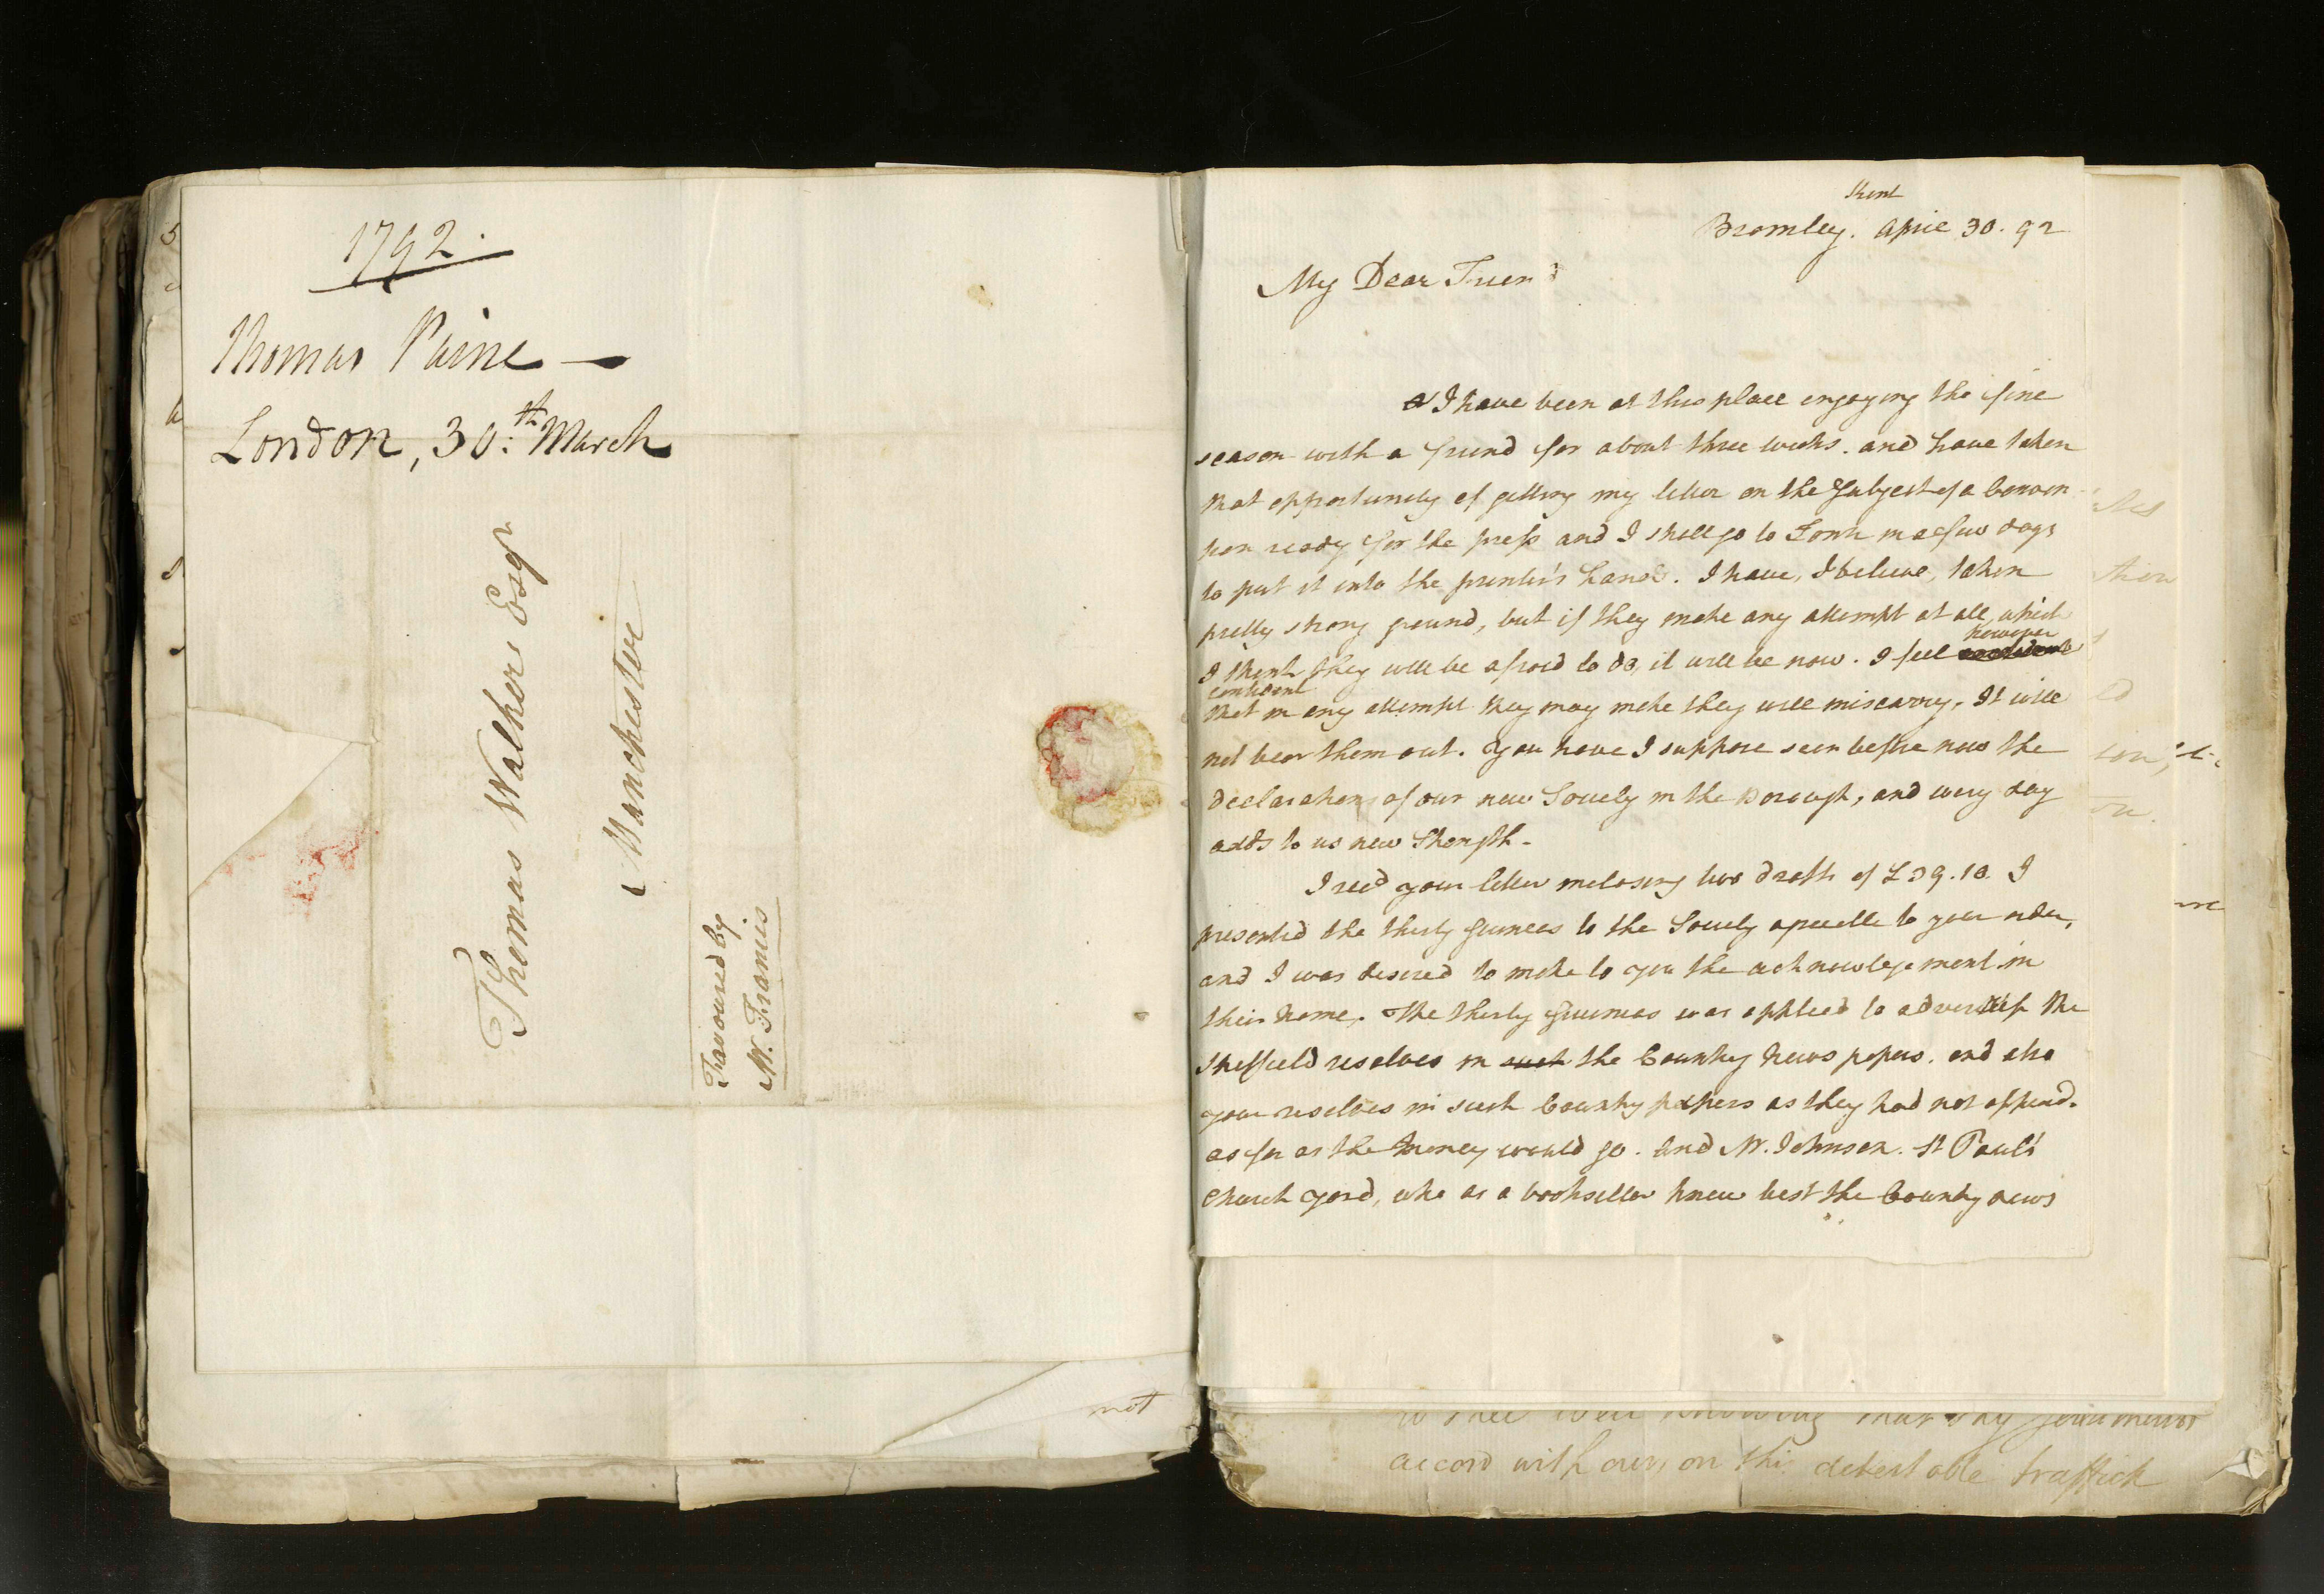 1792.
Thomas Paine —
London, 30:th March
Thomas Walker Esqr
Manchester
Favoured by
Mr. Francis
not
Kent
Bromley. April 30. 92
My Dear Friend
I have been at this place enjoying the fine
season with a friend for about three weeks. and have taken
that opportunity of getting my letter on the Subject of a Conven
tion ready for the press and I shall go to Town in a few days
to put it into the printer's hands. I have, I believe, taken
pretty strong ground, but if they make any attempt at all, which
I think they will be afraid to do, it will be now. I feel however
confident
that in any attempt they may make they will miscarry. It will
not bear them out. You have I suppose seen before now the
declarations of our new Society in the Borough, and every day
adds to us new Strength.
I recd your letter inclosing two drafts of £39.18. I
presented the thirty Guineas to the Society agreeable to your order,
and I was desired to make to you the acknowlegement in
their Name. The thirty Guineas was applied to advertise the
Sheffield resolves in such the Country News papers. and also
your resolves in such Country papers as they had not appeard.
as far as the Money would go. And Mr. Johnson. St Paul's
Church Yard, who as a bookseller knew best the Country news
accord with ours, on this detestable traffick